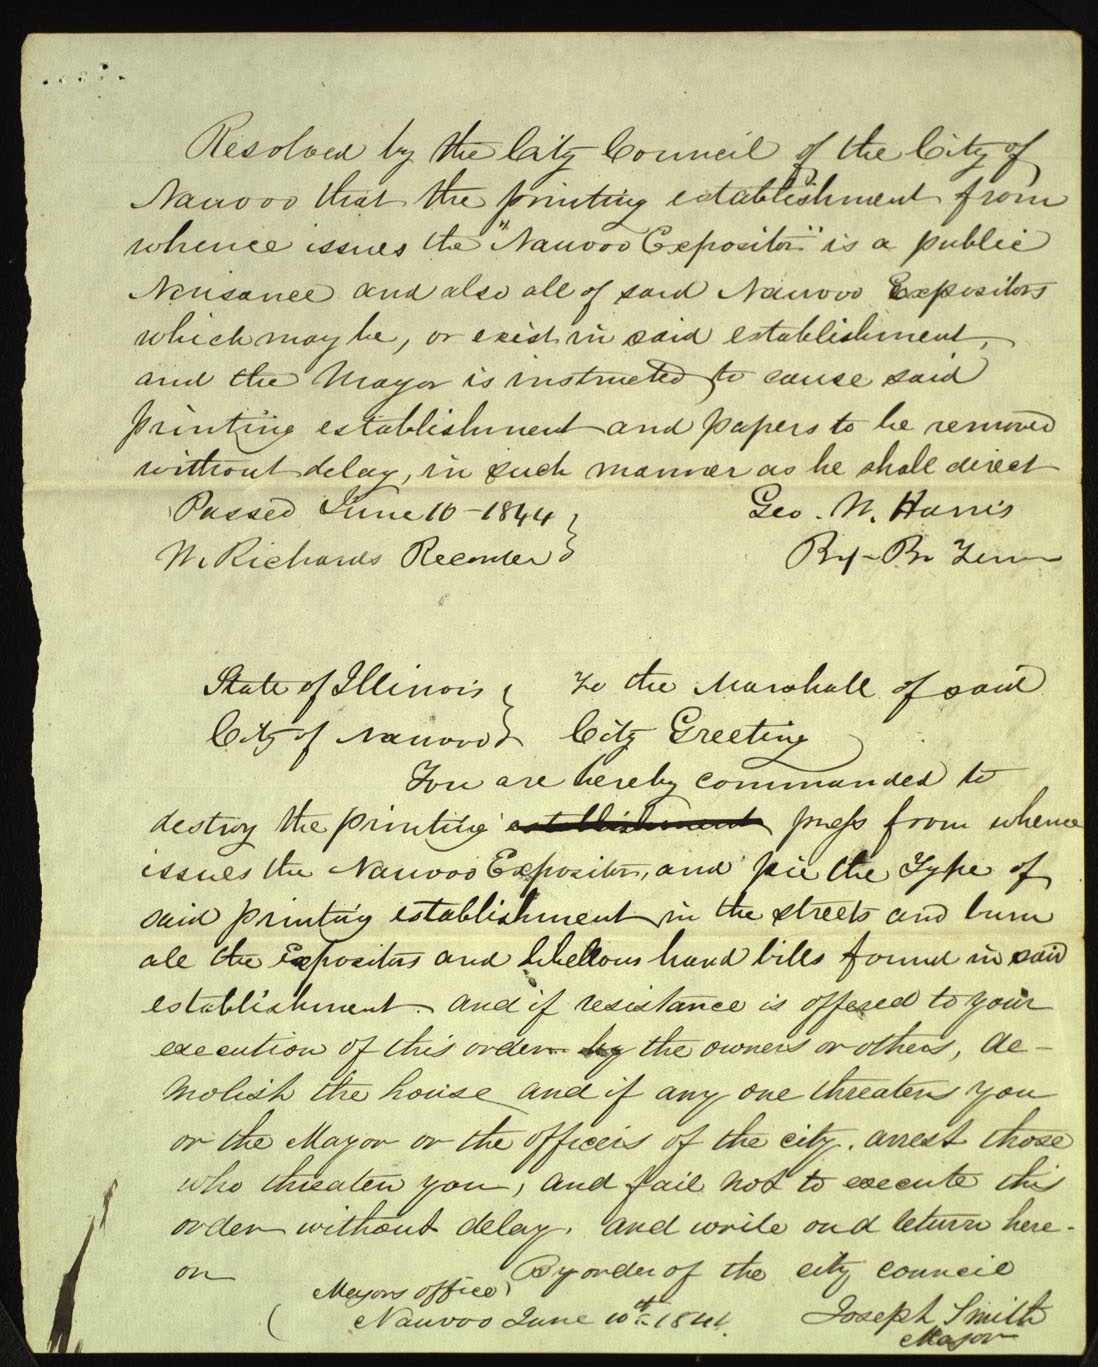 Resolved by the City Council of the City of
Nauvoo that the printing establishment from
whence issues the "Nauvoo Expositor" is a public
Nusance and also all of said Nauvoo Expositors
which may be, or exist in said establishment,
and the Mayor is instructed to cause said
printing establishment and papers to be removed
without delay, in such manner as he shall direct
Passed June 10 - 1844 Geo. W. Harris
W. Richards Recorder
State of Illinois To the Marshall of said
City of Nauvoo City Greeting
You are hereby commanded to
destroy the printing establishment press from whence
issues the Nauvoo Expositor, and pie the Type of
said printing establishment in the streets and burn
all the Expositors and libellous hand bills found in said
establishment. and if resistance is offered to your
execution of this order by the owners or others, de-
molish the house and if any one threatens you
or the Mayor or the officers of the city. arrest those
who threaten you, and fail not to execute this
order without delay. and
here-
on By order of the city council
Mayors office
Nauvoo June 10th 1844. Joseph Smith
Mayor